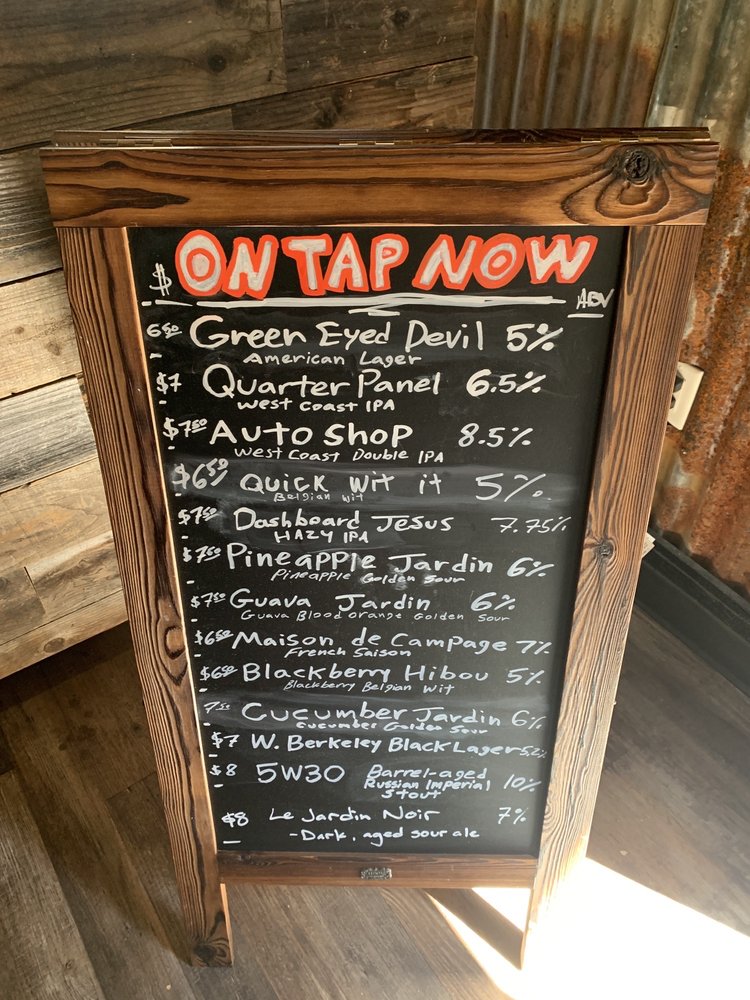 $ ON TAP NOW ABV
6.50 Green Eyed Devil 5%
American Lager
$7 Quarter Panel 6.5%
West Coast IPA
$7.50 Auto Shop 8.5%
West Coast Double IPA
$6.50 Quick Wit it 5%
Belgian Wit
$7.50 Dashboard Jesus 7.75%
HAZY IPA
$7.50 Pineapple Jardin 6%
Pineapple Golden Sour
$7.50 Guava Jardin 6%
Guava Blood Orange Golden Sour
$6.50 Maison de Campage 7%
French Saison
$6.50 Blackberry Hibou 5%
Blackberry Belgian Wit
7.50 Cucumber Jardin 6%
Cucumber Golden Sour
$7 W. Berkeley Black Lager 5.2%
$8 5W30 Barrel-aged 10%
Russian Imperial
Stout
$8 Le Jardin Noir 7%
-Dark, aged sour ale